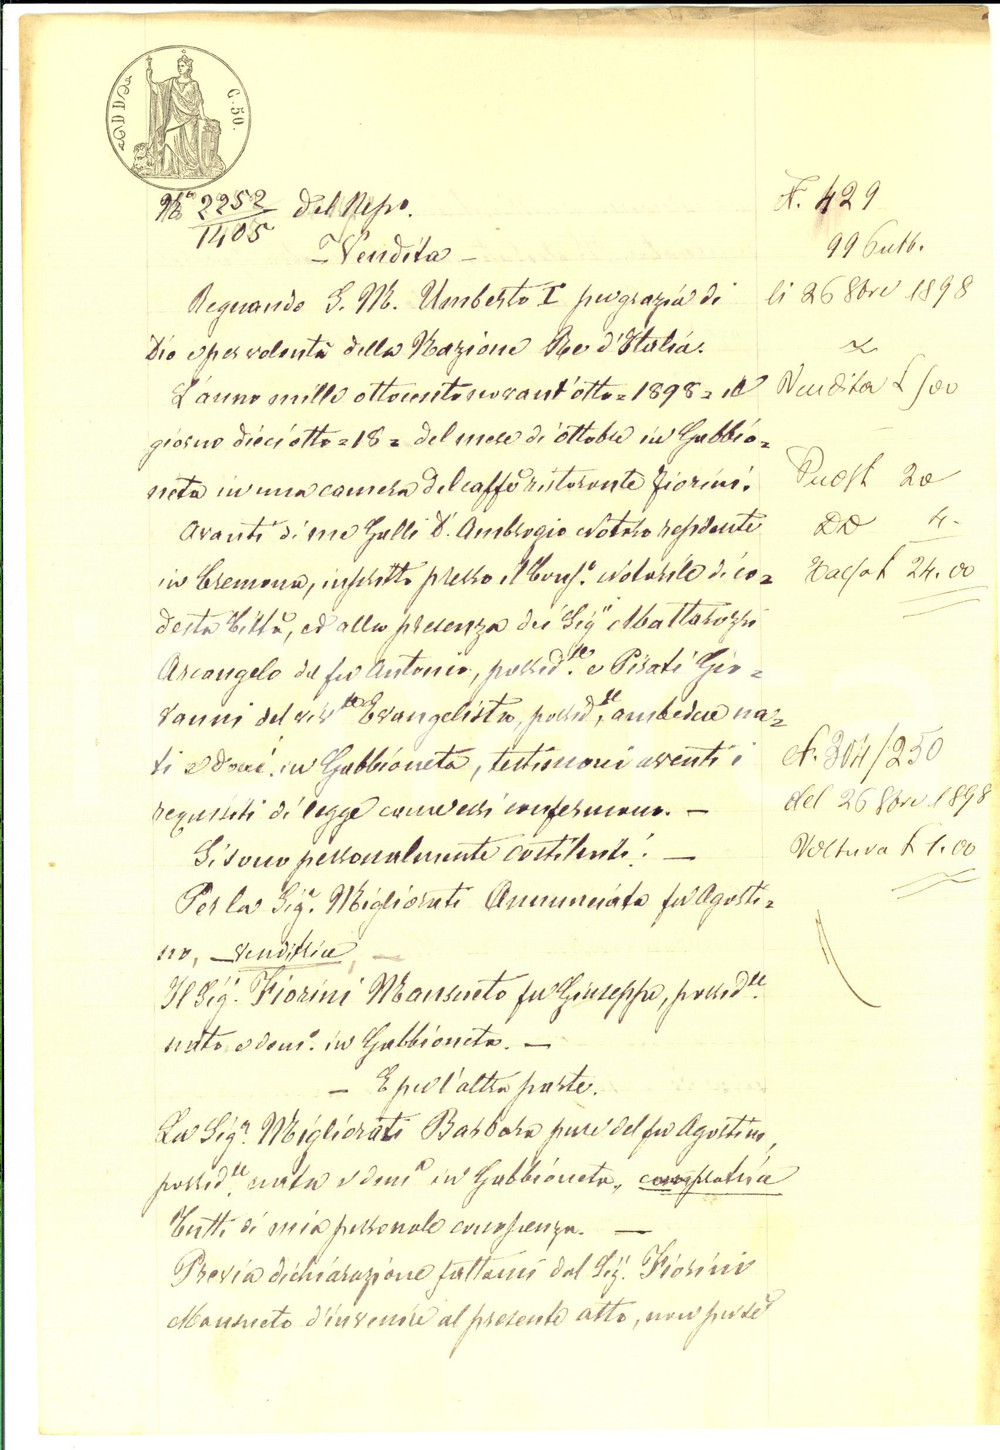 DD
C. 50.
N.º 2252/1405 del Rep.º
- Vendita -
Regnando S. M. Umberto I per grazia di
Dio e per volontà della Nazione Re d'Italia.
L'anno mille ottocento novant'otto = 1898 = il
giorno dieciotto = 18 = del mese di ottobre in Gabbio=
neta in una camera del caffè ristorante Fiorini.
Avanti di me Galli D.r Ambrogio Notaro residente
in Cremona, inscritto presso il Cons.º Notarile di co=
desta Città, ed alla presenza dei Sig.ri Mattarozzi
Arcangelo del fu Antonio, possid.te e Pisati Gio=
vanni del viv.te Evangelista, possid.te, ambedue na=
ti e dom.i in Gabbioneta, testimoni aventi i
requisiti di legge come essi confermano. -
Si sono personalmente costituiti: -
Per la Sig.ra Migliorati Annunciata fu Agosti=
no, - venditrice, -
Il Sig.r Fiorini Mansueto fu Giuseppe, possid.te
nato e dom.º in Gabbioneta. -
- E per l'altra parte.
La Sig.ra Migliorati Barbara pure del fu Agostino,
possid.te nata e dom.a in Gabbioneta, compratrice
Tutti di mia personale conoscenza. -
Previa dichiarazione fattami dal Sig.r Fiorini
Mansueto d'invenire al presente atto, non per sè
N. 429
99 Pubb.
li 26 8bre 1898
Vendita £ 500
20
DD 4.-
£ 24.00
N. 304/250
del 26 8bre 1898
Voltura £ 1.00